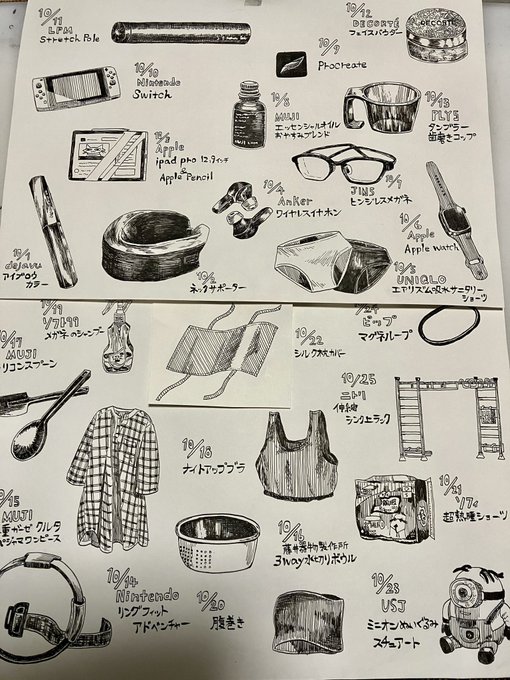 10/11
Stretch Pole
10/12
DECORTÉ
フェイスパウダー
DECORTÉ
10/9
Procreate
10/10
Nintendo
Switch
10/8
MUJI
エッセンシャルオイル
おやすみブレンド
10/13
PLYS
タンブラー
歯磨きコップ
10/3
Apple
ipad pro 12.9インチ
&
Apple Pencil
10/7
JINS
ヒンジレスメガネ
10/4
Anker
ワイヤレスイヤホン
10/6
Apple
Apple Watch
10/1
dejavu
アイブロウ
カラー
10/2
ネックサポーター
10/5
UNIQLO
エアリズム吸水サニタリー
ショーツ
/19
ソフト99
メガネのシャンプー
/17
MUJI
リコンスプーン
10/22
シルク枕カバー
ピップ
マグネループ
10/25
ニトリ
伸縮
シンク上ラック
10/18
ナイトアップブラ
/15
MUJI
重ガーゼ クルタ
パジャマワンピース
10/21
ソフィ
超熟睡ショーツ
10/16
藤井器物製作所
3way水切りボウル
10/14
Nintendo
リングフィット
アドベンチャー
10/20
腹巻き
10/23
USJ
ミニオンぬいぐるみ
スチュアート